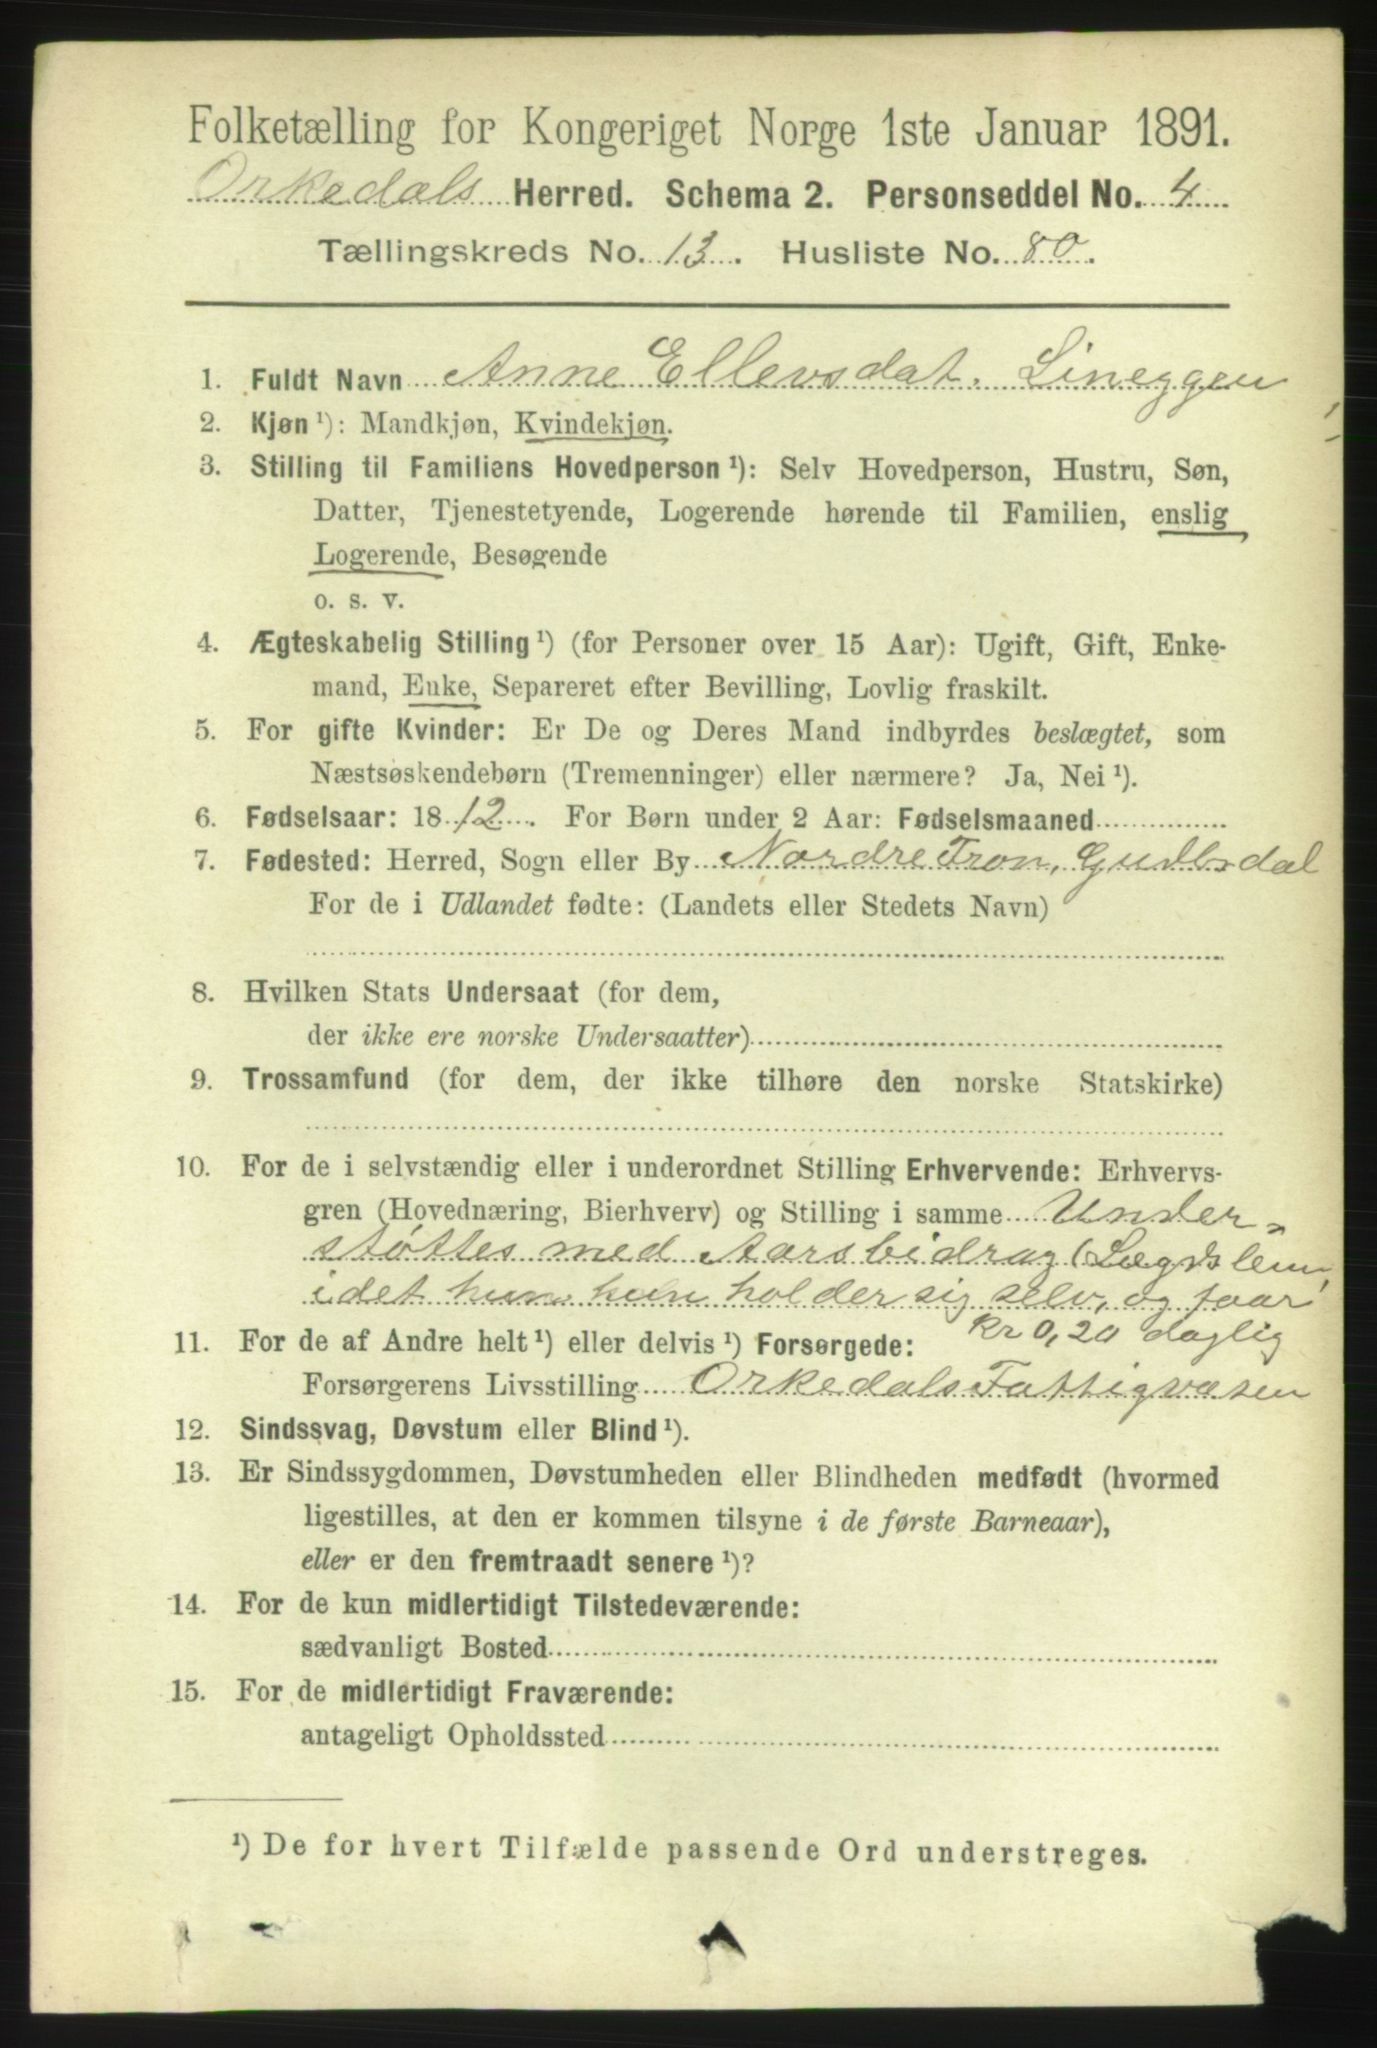 Folketælling for Kongeriget Norge 1ste Januar 1891.
Orkedals Herred. Schema 2. Personseddel No. 4
Tællingskreds No. 13. Husliste No. 80.
1. Fuldt Navn Anne Ellevsdat. Lineggen
2. Kjøn ¹): Mandkjøn, Kvindekjøn.
3. Stilling til Familiens Hovedperson ¹): Selv Hovedperson, Hustru, Søn,
Datter, Tjenestetyende, Logerende hørende til Familien, enslig
Logerende, Besøgende
o. s. v.
4. Ægteskabelig Stilling ¹) (for Personer over 15 Aar): Ugift, Gift, Enke-
mand, Enke, Separeret efter Bevilling, Lovlig fraskilt.
5. For gifte Kvinder: Er De og Deres Mand indbyrdes beslægtet, som
Næstsøskendebørn (Tremenninger) eller nærmere? Ja, Nei ¹).
6. Fødselsaar: 1812. For Børn under 2 Aar: Fødselsmaaned
7. Fødested: Herred, Sogn eller By Nordre Fron, Gudbsdal
For de i Udlandet fødte: (Landets eller Stedets Navn)
8. Hvilken Stats Undersaat (for dem,
der ikke ere norske Undersaatter)
9. Trossamfund (for dem, der ikke tilhøre den norske Statskirke)
10. For de i selvstændig eller i underordnet Stilling Erhvervende: Erhvervs-
gren (Hovednæring, Bierhverv) og Stilling i samme Under-
støttes med Aarsbidrag (Lægdslem,
idet hun hun holder sig selv, og faar
kr 0,20 daglig
11. For de af Andre helt ¹) eller delvis ¹) Forsørgede:
Forsørgerens Livsstilling Orkedals Fattigvæsen
12. Sindssvag, Døvstum eller Blind ¹).
13. Er Sindssygdommen, Døvstumheden eller Blindheden medfødt (hvormed
ligestilles, at den er kommen tilsyne i de første Barneaar),
eller er den fremtraadt senere ¹)?
14. For de kun midlertidigt Tilstedeværende:
sædvanligt Bosted
15. For de midlertidigt Fraværende:
antageligt Opholdssted
¹) De for hvert Tilfælde passende Ord understreges.